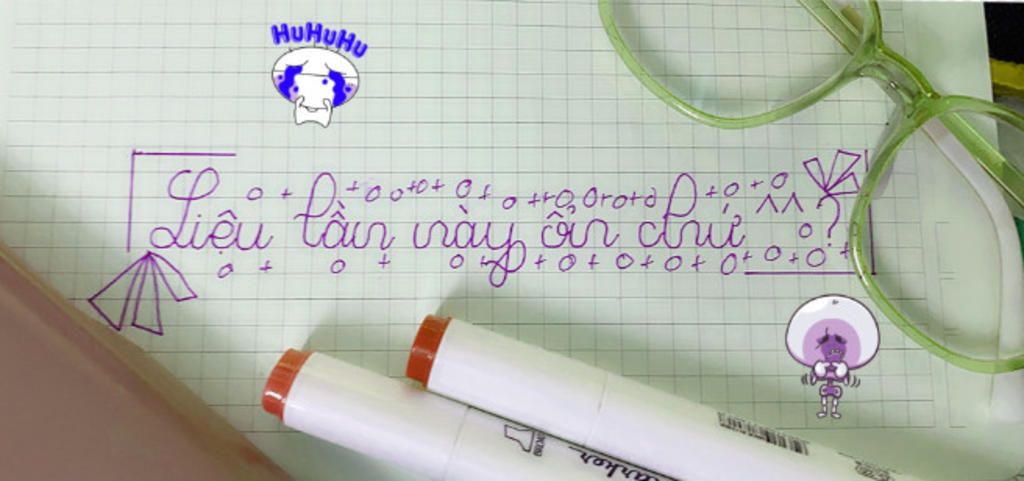 HuHuHu
Liệu lần này ổn chứ ^^ ?
arker